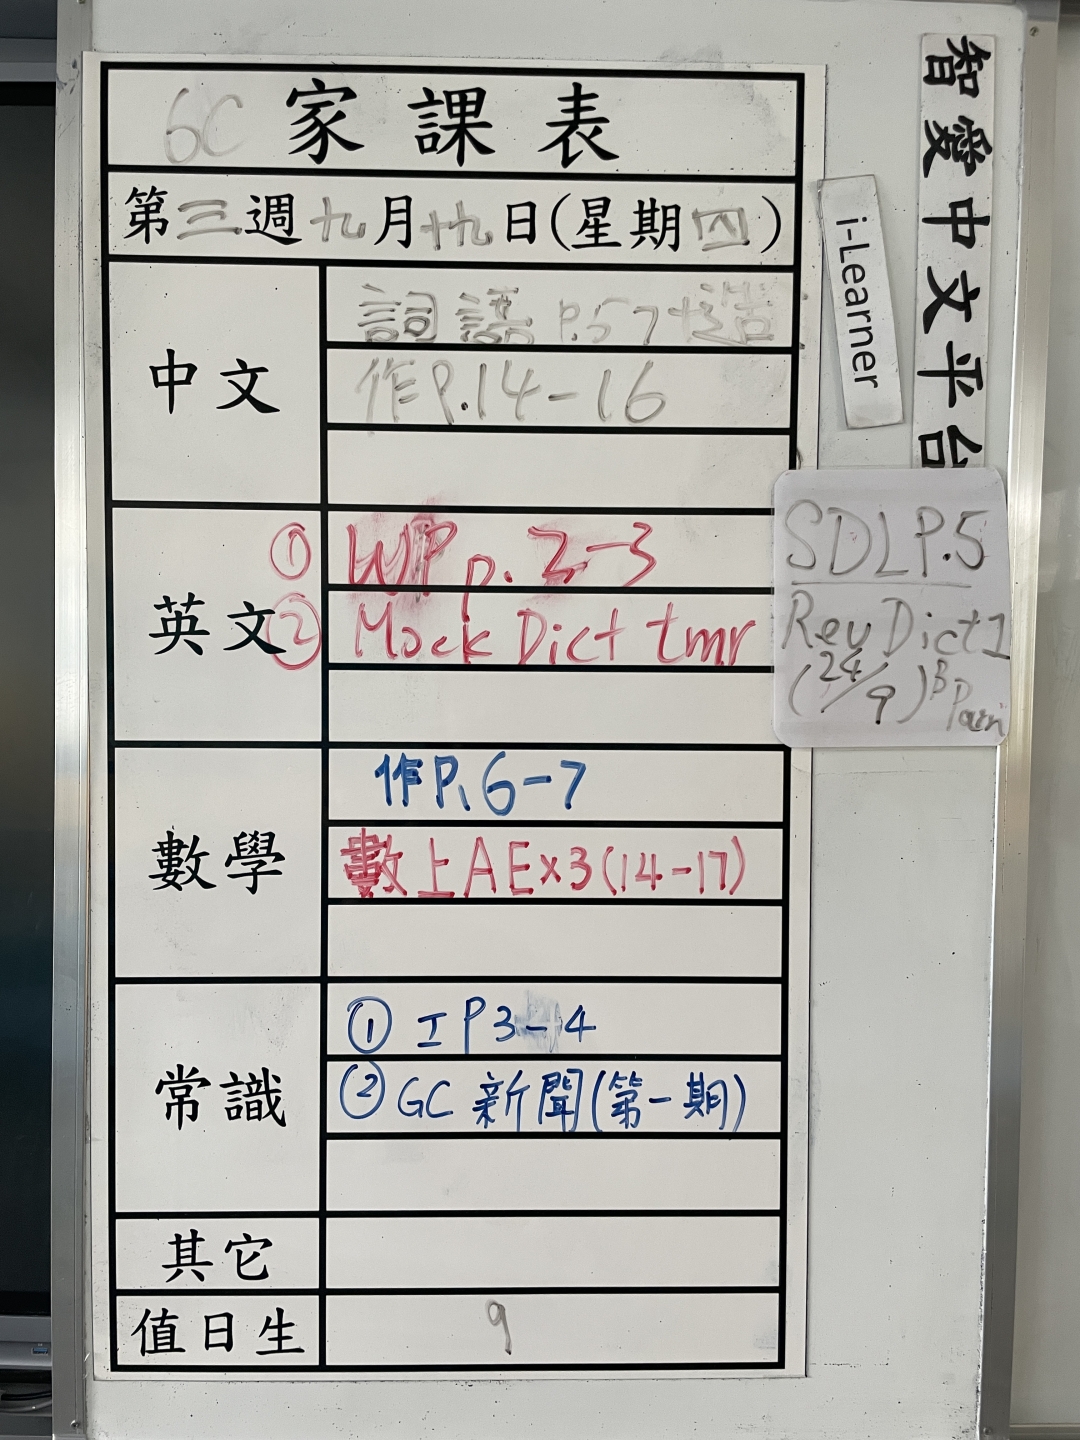 6C 家課表
第三週九月十九日(星期四)
中文
詞語 P.57+造
作P.14-16
英文
① WP p. 2-3
② Mock Dict tmr
數學
作P.6-7
數上AE×3(14-17)
常識
① 工P3-4
② GC 新聞(第一期)
其它
值日生
9
智愛中文平台
i-Learner
SDL P.5
Rev Dict 1
(24/9)